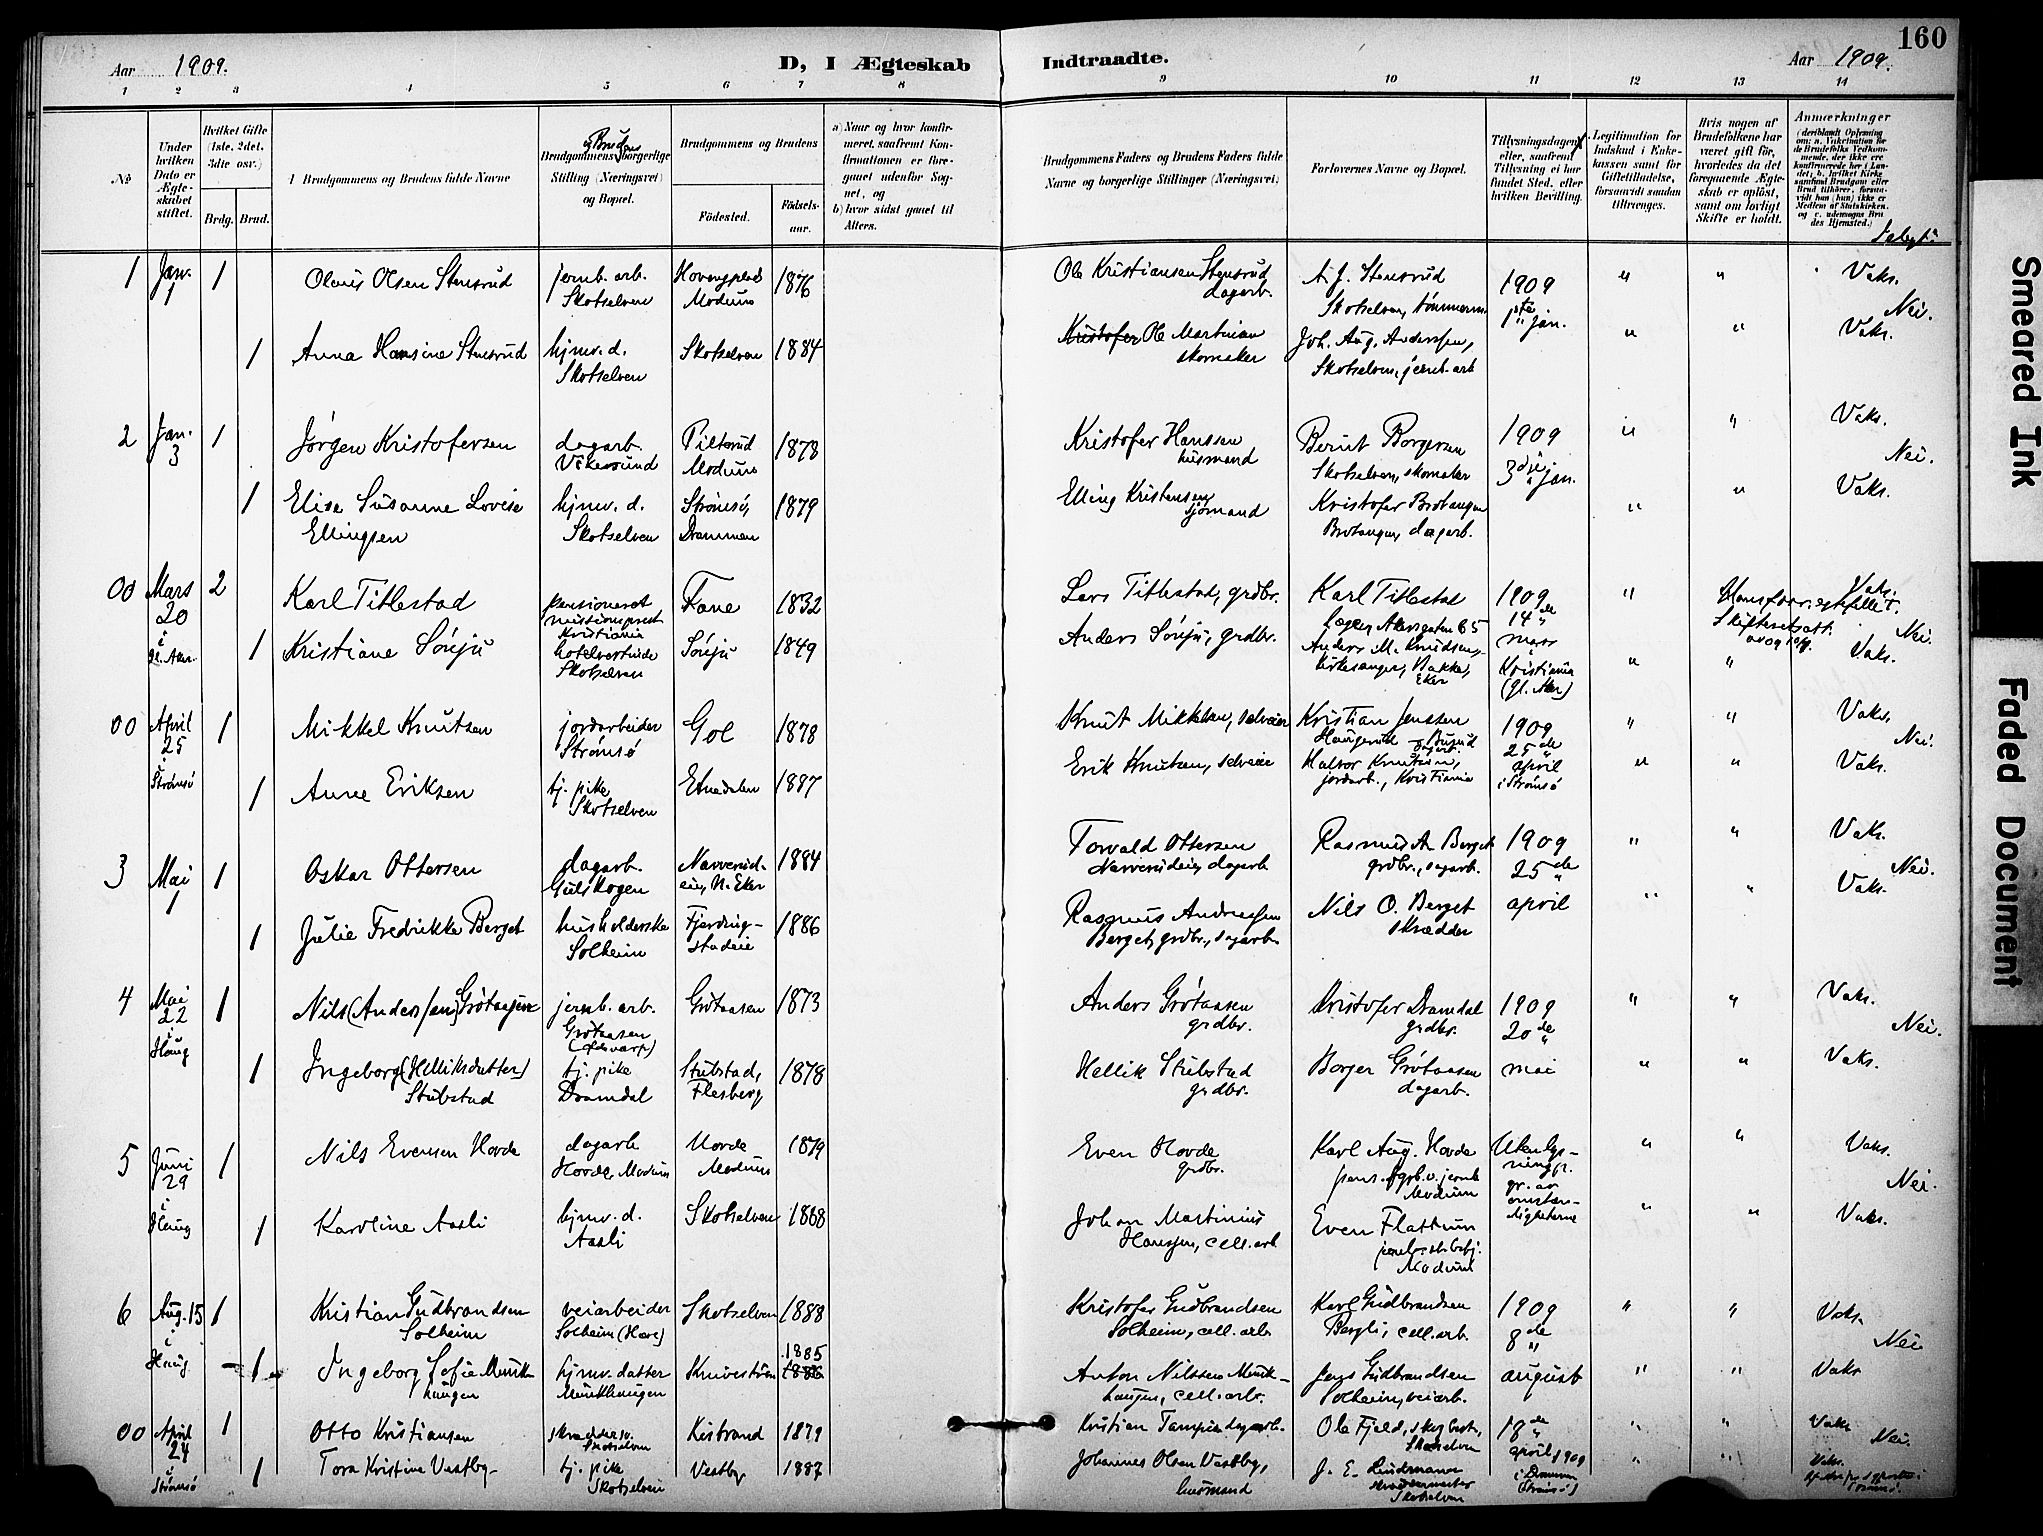 160
Aar 1909.
D, I Ægteskab Indtraadte.
Aar 1909.
1 2 3 4 5 6 7 8 9 10 11 12 13 14
No
Under hvilken Dato er Ægteskabet stiftet.
Hvilket Gifte (1ste, 2det, 3die osv.)
Brdg. Brud.
Brudgommens og Brudens fulde Navne
Brudgommens og Brudens borgerlige Stilling (Næringsvei) og Bopæl.
Brudgommens og Brudens
Födested.
Födselsaar.
a) Naar og hvor konfirmeret, saafremt Konfirmationen er foregaaet udenfor Sognet, og
b) hvor sidst gaaet til Alters.
Brudgommens Faders og Brudens Faders fulde Navne og borgerlige Stillinger (Næringsvei)
Forlovernes Navne og Bopæl.
Tillysningsdagen eller, saafremt Tillysning ei har fundet Sted, efter hvilken Bevilling.
Legitimation for Indskud i Enkekassen samt for Giftetilladelse, forsaavidt saadan tiltrænges.
Hvis nogen af Brudefolkene har været gift før, hvorledes da det foregaaende Ægteskab er opløst, samt om lovligt Skifte er holdt.
Anmærkninger
1 Jan. 1 1 Olaus Olsen Stensrud jernb. arb. Skotselven Modum 1876 Ole Kristiansen Stensrud dagarb. A. J. Stensrud Skotselven, 1909 1ste jan. " " Vaks. Nei.
1 Anna Hansine Stensrud hjmv. d. Skotselven Skotselven 1884 Kristofer Ole Martinian skomaker Joh. Aug. Anderssen, Skotselven, jernb. arb " " Vaks.
2 Jan. 3 1 Jörgen Kristofersen dagarb. Vikesund Piltsrud Modum 1878 Kristofer Hanssen husmand Bernt Borgersen Skotselven, skomaker 1909 3die jan. " " Vaks. Nei.
1 Elise Susanne Lovise Ellingsen hjmv. d. Skotselven Strömsö, Drammen 1879 Elling Kristensen sjömand Kristofer Brotangen Brotangen, dagarb. " " Vaks.
00 Mars 20 i Gl. Aker 2 Karl Titlestad pensioneret missionsprest Kristiania Fane 1832 Lars Titlestad, grdbr. Karl Titlestad Akersgaten 65 1909 14de mars i Kristiania (gl. Aker) " Vaks. Nei.
1 Kristiane Sönju hotelvertinde Skotselven Sönju 1849 Anders Sönju, grdbr. Anders M. Knudsen, kirkesanger, Bakke, Eker " " Vaks.
00 April 25 i Strömsö 1 Mikkel Knutsen jordarbeider Strömsö Gol 1878 Knut Mikkelsen, selveier Kristian Jenssen 1909 25de april i Strömsö " " Vaks. Nei.
1 Anne Eriksen tj. pike Skotselven Etnedalen 1887 Erik Knutsen, selveier Halvor Knutsen, jordarb., Kristiania " " Vaks.
3 Mai 1 1 Oskar Ottersen dagarb. Gulskogen Narverudeie, N. Eker 1884 Torvald Ottersen Narverudeie, dagarb Rasmus A. Berget grdbr., sagarb. 1909 25de april " " Vaks. Nei.
1 Julie Fredrikke Berget husholderske Solheim Fjerdingstadeie 1886 Rasmus Andreassen Berget, grdbr., sagarb. Nils O. Berget skrædder " " Vaks.
4 Mai 22 i Haug 1 Nils (Anderssen) Grötaasen jernb. arb. Grötaasen Grötaasen 1873 Anders Grötaasen grdbr. Kristofer Dramdal grdbr. 1909 20de mai " " Vaks. Nei.
1 Ingeborg (Helliksdatter) Stubstad tj. pike Dramdal Stubstad, Flesberg 1878 Hellik Stubstad grdbr. Borger Grötaasen dagarb. " " Vaks.
5 Juni 29 i Haug 1 Nils Evensen Hovde dagarb Hovde, Modum Hovde Modum 1879 Even Hovde grdbr. Karl Aug. Hovde Modum Uten lysning p. gr. av omstændigheterne " " Vaks. Nei.
1 Karoline Aasli hjmv. d. Aasli Skotselven 1868 Johan Martinius Hanssen, cell. arb Even Flattum Modum " " Vaks.
6 Aug. 15 i Haug 1 Kristian Gudbrandsen Solheim veiarbeider Solheim Skotselven 1888 Kristofer Gudbrandsen Solheim, cell. arb. Karl Gudbrandsen Bergli, cell. arb. 1909 8de august " " Vaks. Nei
1 Ingeborg Sofie Munkhaugen hjmv. datter Munkhaugen 1885 1886 Anton Nilssen Munkhaugen, cell. arb. Jens Gudbrandsen Solheim, veiarb. " " Vaks
00 April 24 i Strömsö 1 Otto Kristiansen Skotselven Kistrand 1879 Kristian Ole Fjeld, Skotselven 18de april 1909 i Drammen (Strömsö) " " Vaks Nei.
1 Tora Kristine Vestby tj. pike Skotselven Vestby 1887 Johannes Olsen Vestby, husmand J. E. Lindemann Skotselven " " Vaks.
Smeared Ink
Faded Document